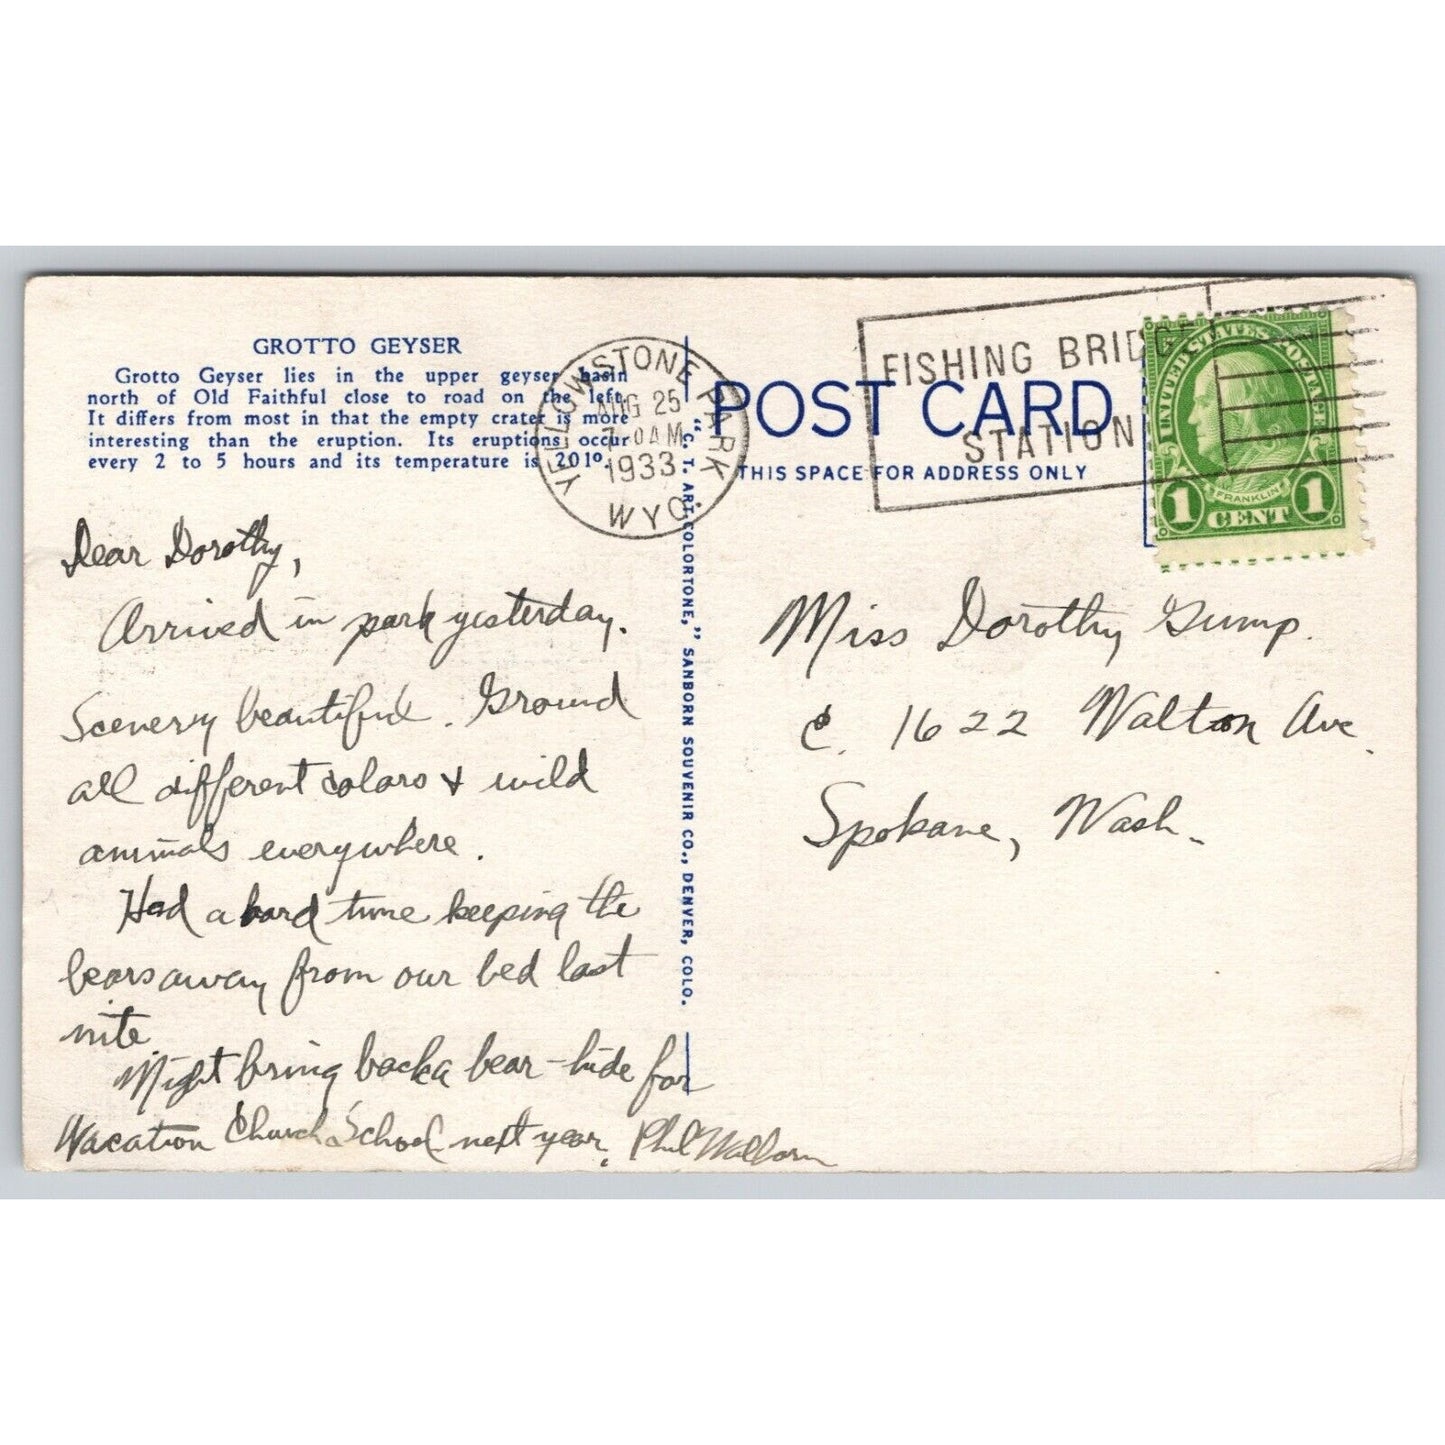 GROTTO GEYSER
Grotto Geyser lies in the upper geyser basin
north of Old Faithful close to road on the left.
It differs from most in that the empty crater is more
interesting than the eruption. Its eruptions occur
every 2 to 5 hours and its temperature is 201°.
YELLOWSTONE PARK
AUG 25
AM
1933
WYO
FISHING BRIDGE
STATION
POST CARD
THIS SPACE FOR ADDRESS ONLY
UNITED STATES POSTAGE
FRANKLIN
1 CENT 1
"C. T. ART-COLORTONE," SANBORN SOUVENIR CO., DENVER, COLO.
Dear Dorothy,
Arrived in park yesterday.
Scenery beautiful. Ground
all different colors & wild
animals everywhere.
Had a hard time keeping the
bears away from our bed last
nite.
Might bring back a bear-hide for
Vacation Church School next year. Phil
Miss Dorothy Gump.
1622 Walton Ave.
Spokane, Wash.